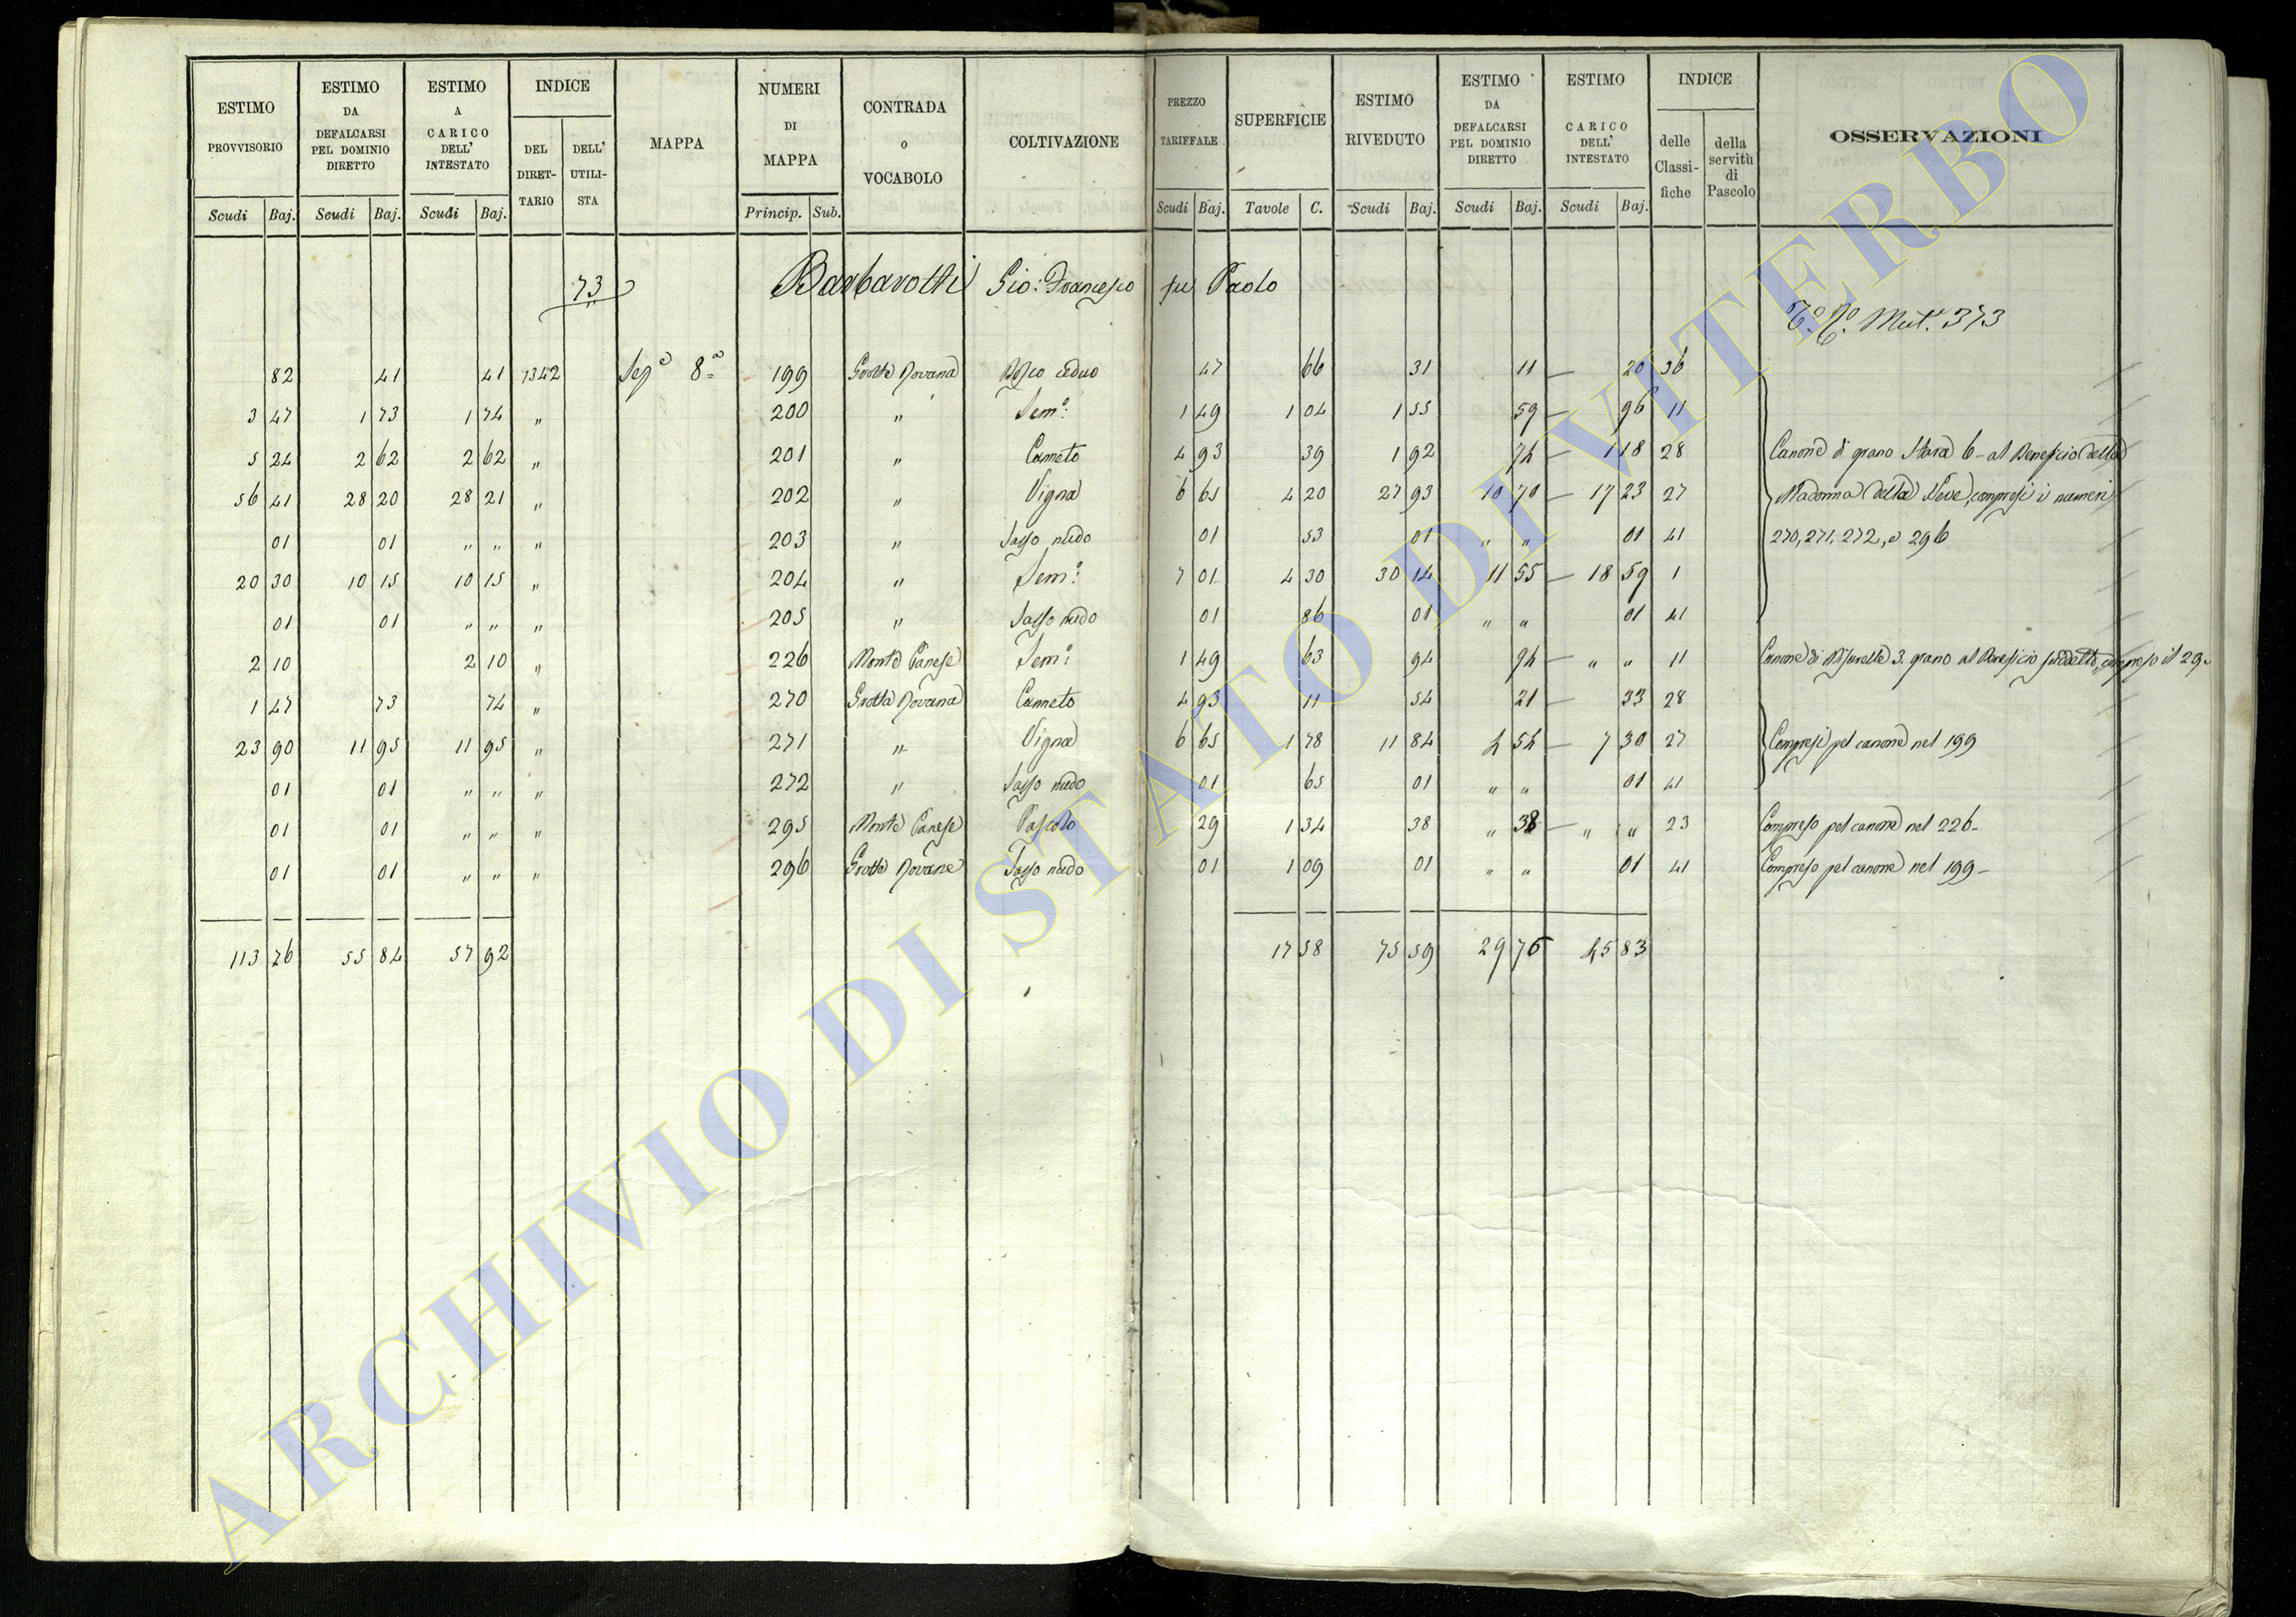 ESTIMO PROVVISORIO Scudi Baj. | ESTIMO DA DEFALCARSI PEL DOMINIO DIRETTO Scudi Baj. | ESTIMO A CARICO DELL' INTESTATO Scudi Baj. | INDICE DEL DIRETTARIO | DELL' UTILISTA | MAPPA | NUMERI DI MAPPA Princip. Sub. | CONTRADA O VOCABOLO | COLTIVAZIONE | PREZZO TARIFFALE Scudi Baj. | SUPERFICIE Tavole C. | ESTIMO RIVEDUTO Scudi Baj. | ESTIMO DA DEFALCARSI PEL DOMINIO DIRETTO Scudi Baj. | ESTIMO CARICO DELL' INTESTATO Scudi Baj. | INDICE delle Classifiche | della servitù di Pascolo | OSSERVAZIONI
73 Barbarotti Gio: Francesco fu Paolo
Mut. 373
82 | 41 | 41 | 1342 | Sez.e 8.a | 199 | Grotta | Bosco ceduo | 47 | 66 | 31 | 11 — | 20 | 36
3 47 | 1 73 | 1 74 | " | 200 | " | Sem.o: | 1 49 | 1 04 | 1 55 | 59 — | 96 | 11
5 24 | 2 62 | 2 62 | " | 201 | " | Canneto | 4 93 | 39 | 1 92 | 74 — | 1 18 | 28 | Canone di grano Stara 6 – al Beneficio della
56 41 | 28 20 | 28 21 | " | 202 | " | Vigna | 6 65 | 4 20 | 27 93 | 10 70 — | 17 23 | 27 | Madonna della Neve, compresi i numeri
01 | 01 | " " | " | 203 | " | Sasso nudo | 01 | 53 | 01 | " " | 01 | 41 | 270, 271, 272, e 296
20 30 | 10 15 | 10 15 | " | 204 | " | Sem.o: | 7 01 | 4 30 | 30 14 | 11 55 — | 18 59 | 1
01 | 01 | " " | " | 205 | " | Sasso nudo | 01 | 86 | 01 | " " | 01 | 41
2 10 | | 2 10 | " | 226 | Monte Canese | Sem.o: | 1 49 | 63 | 94 | 94 — | " " | 11 | Canone di 3. grano al Beneficio suddetto, compreso il 29
1 47 | 73 | 74 | " | 270 | Grotta | Canneto | 4 93 | 11 | 54 | 21 — | 33 | 28
23 90 | 11 95 | 11 95 | " | 271 | " | Vigna | 6 65 | 1 78 | 11 84 | 4 54 — | 7 30 | 27 | Compresi pel canone nel 199
01 | 01 | " " | " | 272 | " | Sasso nudo | 01 | 65 | 01 | " " | 01 | 41
01 | 01 | " " | " | 295 | Monte Canese | Pascolo | 29 | 1 34 | 38 | " 38 — | " " | 23 | Compreso pel canone nel 226 –
01 | 01 | " " | " | 296 | Grotta | Sasso nudo | 01 | 1 09 | 01 | " " | 01 | 41 | Compreso pel canone nel 199 –
113 76 | 55 84 | 57 92 | 17 58 | 75 59 | 29 76 | 45 83
ARCHIVIO DI STATO DI VITERBO